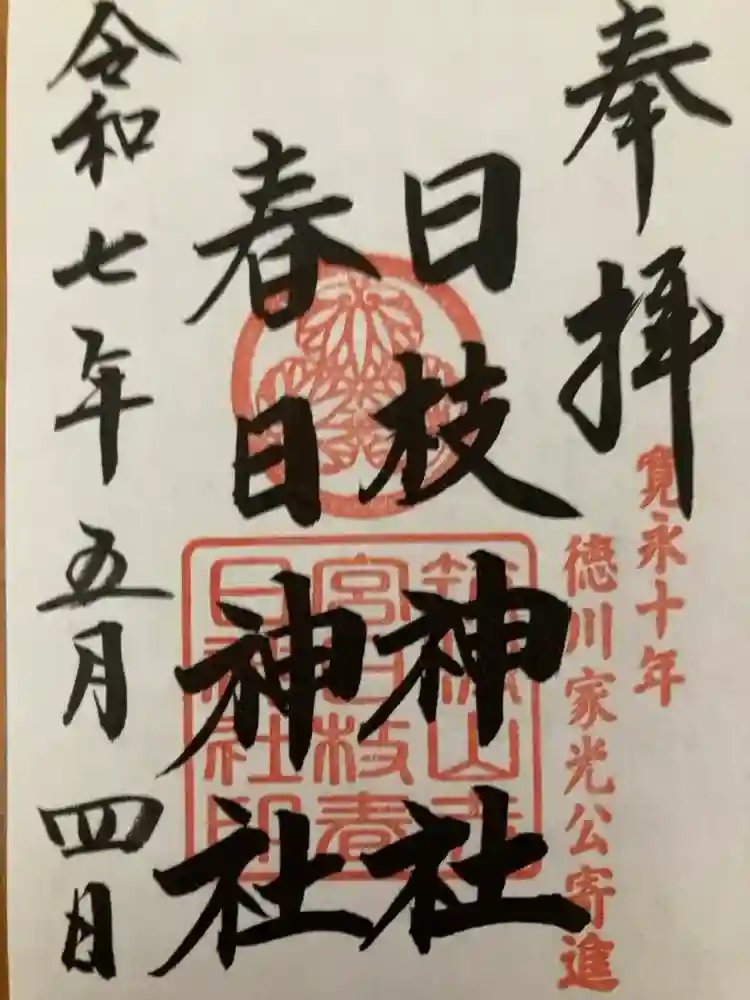 奉拝
寛永十年
徳川家光公寄進
日枝神社
春日神社
筑波山
宮日枝春
日神社印
令和七年五月四日